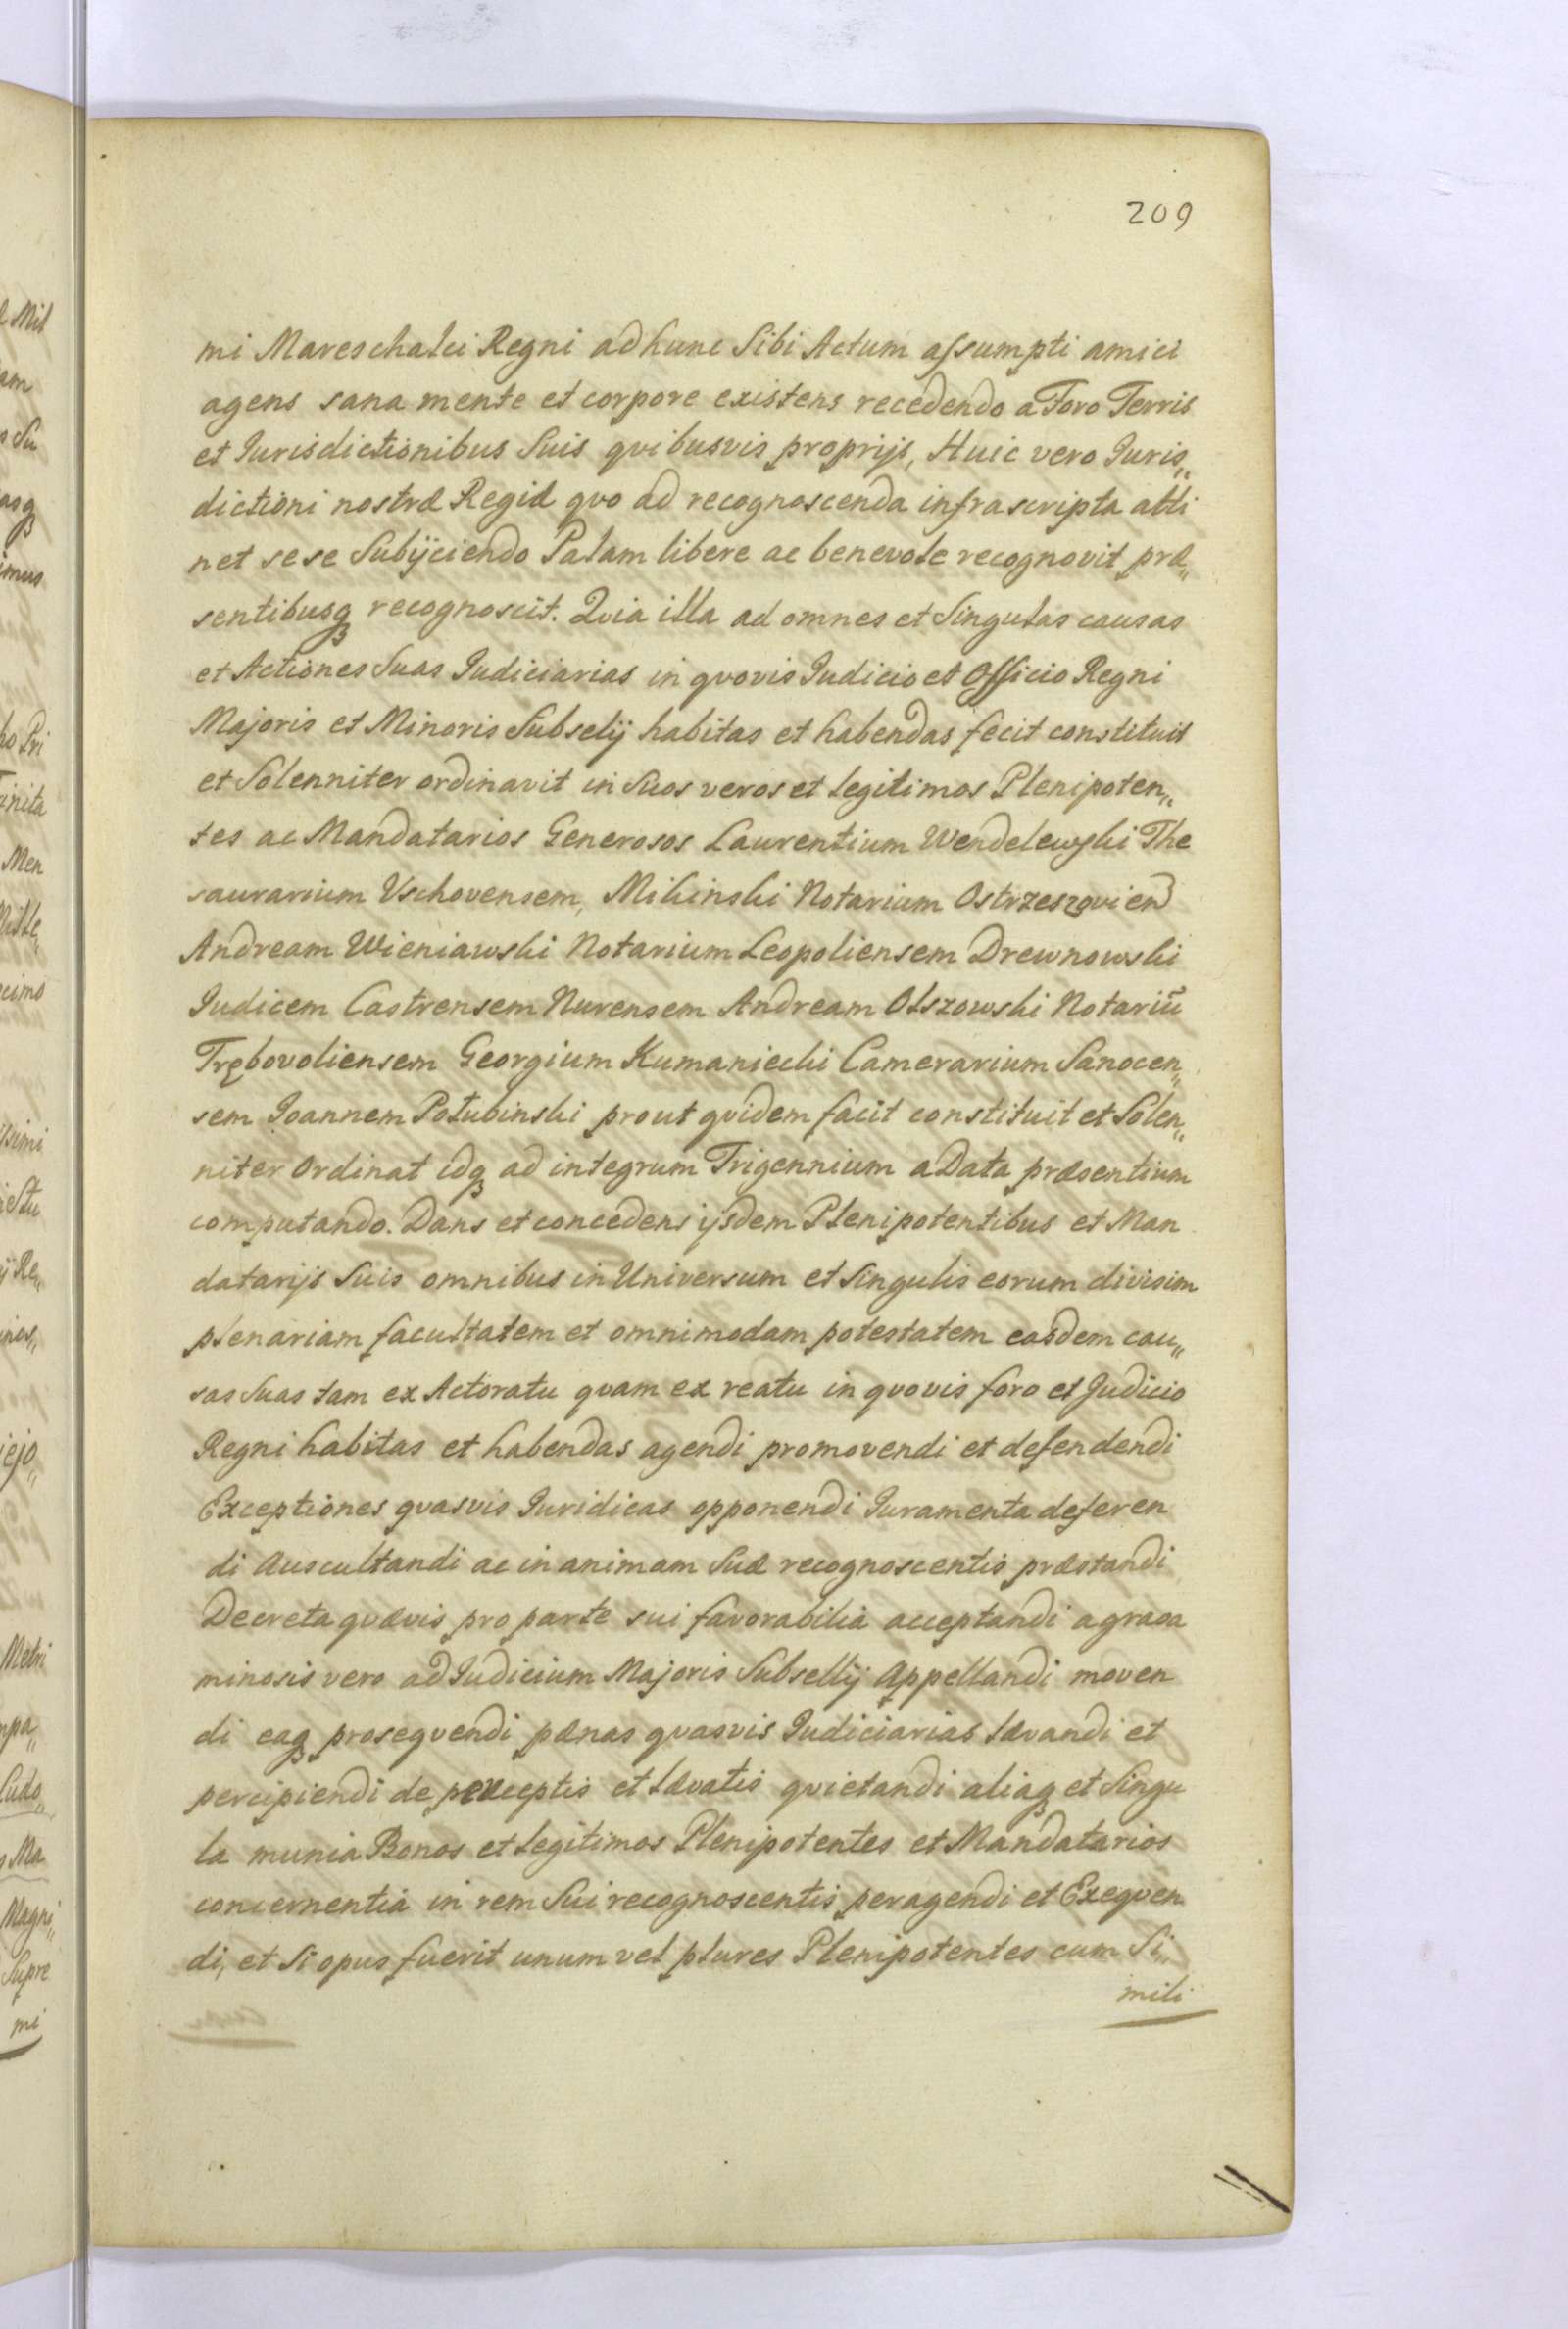 209
mi Mareschalci Regni ad hunc Sibi Actum assumpti amici
agens sana mente et corpore existens recedendo a Foro Terris
et Iurisdictionibus Suis qvibusvis proprijs, Huic vero Juris„
dictioni nostræ Regiæ qvo ad recognoscenda infrascripta atti
net sese Subijciendo Palam libere ac benevole recognovit præ„
sentibusqꝫ recognoscit. Qvia illa ad omnes et Singulas causas
et Actiones Suas Iudiciarias in qvovis Iudicio et Officio Regni
Majoris et Minoris Subselij habitas et habendas fecit constituit
et Solenniter ordinavit in Suos veros et legitimos Plenipoten„
tes ac Mandatarios Generosos Laurentium Wendelewski The
saurarium Vschovensem, Mikinski Notarium Ostrzeszovien
Andream Wieniawski Notarium Leopoliensem Drewnowski
Iudicem Castrensem Nurensem Andream Olszowski Notariū
Trębovoliensem Georgium Kumaniecki Camerarium Sanocen„
sem Joannem Potubinski prout qvidem facit constituit et Solen„
niter Ordinat idqꝫ ad integrum Trigennium a Data præsentium
computando. Dans et concedens ijsdem Plenipotentibus et Man
datarijs Suis omnibus in Universum et Singulis eorum divisim
plenariam facultatem et omnimodam potestatem easdem cau„
sas Suas tam ex Actoratu qvam ex reatu in qvovis foro et Judicio
Regni habitas et habendas agendi promovendi et defendendi
Exceptiones qvasvis Iuridicas opponendi Iuramenta deferen
di Auscultandi ac in animam Suæ recognoscentis præstandi
Decreta qvævis pro parte sui favorabilia acceptandi a grava
minosis vero ad Iudicium Majoris Subsellij Appellandi moven
di eaqꝫ proseqvendi pænas qvasvis Iudiciarias lævandi et
percipiendi de perceptis et lævatis qvietandi aliaqꝫ et Singu
la munia Bonos et legitimos Plenipotentes et Mandatarios
concernentia in rem Sui recognoscentis peragendi et Exeqven
di, et Si opus fuerit unum vel plures Plenipotentes cum Si„
mili